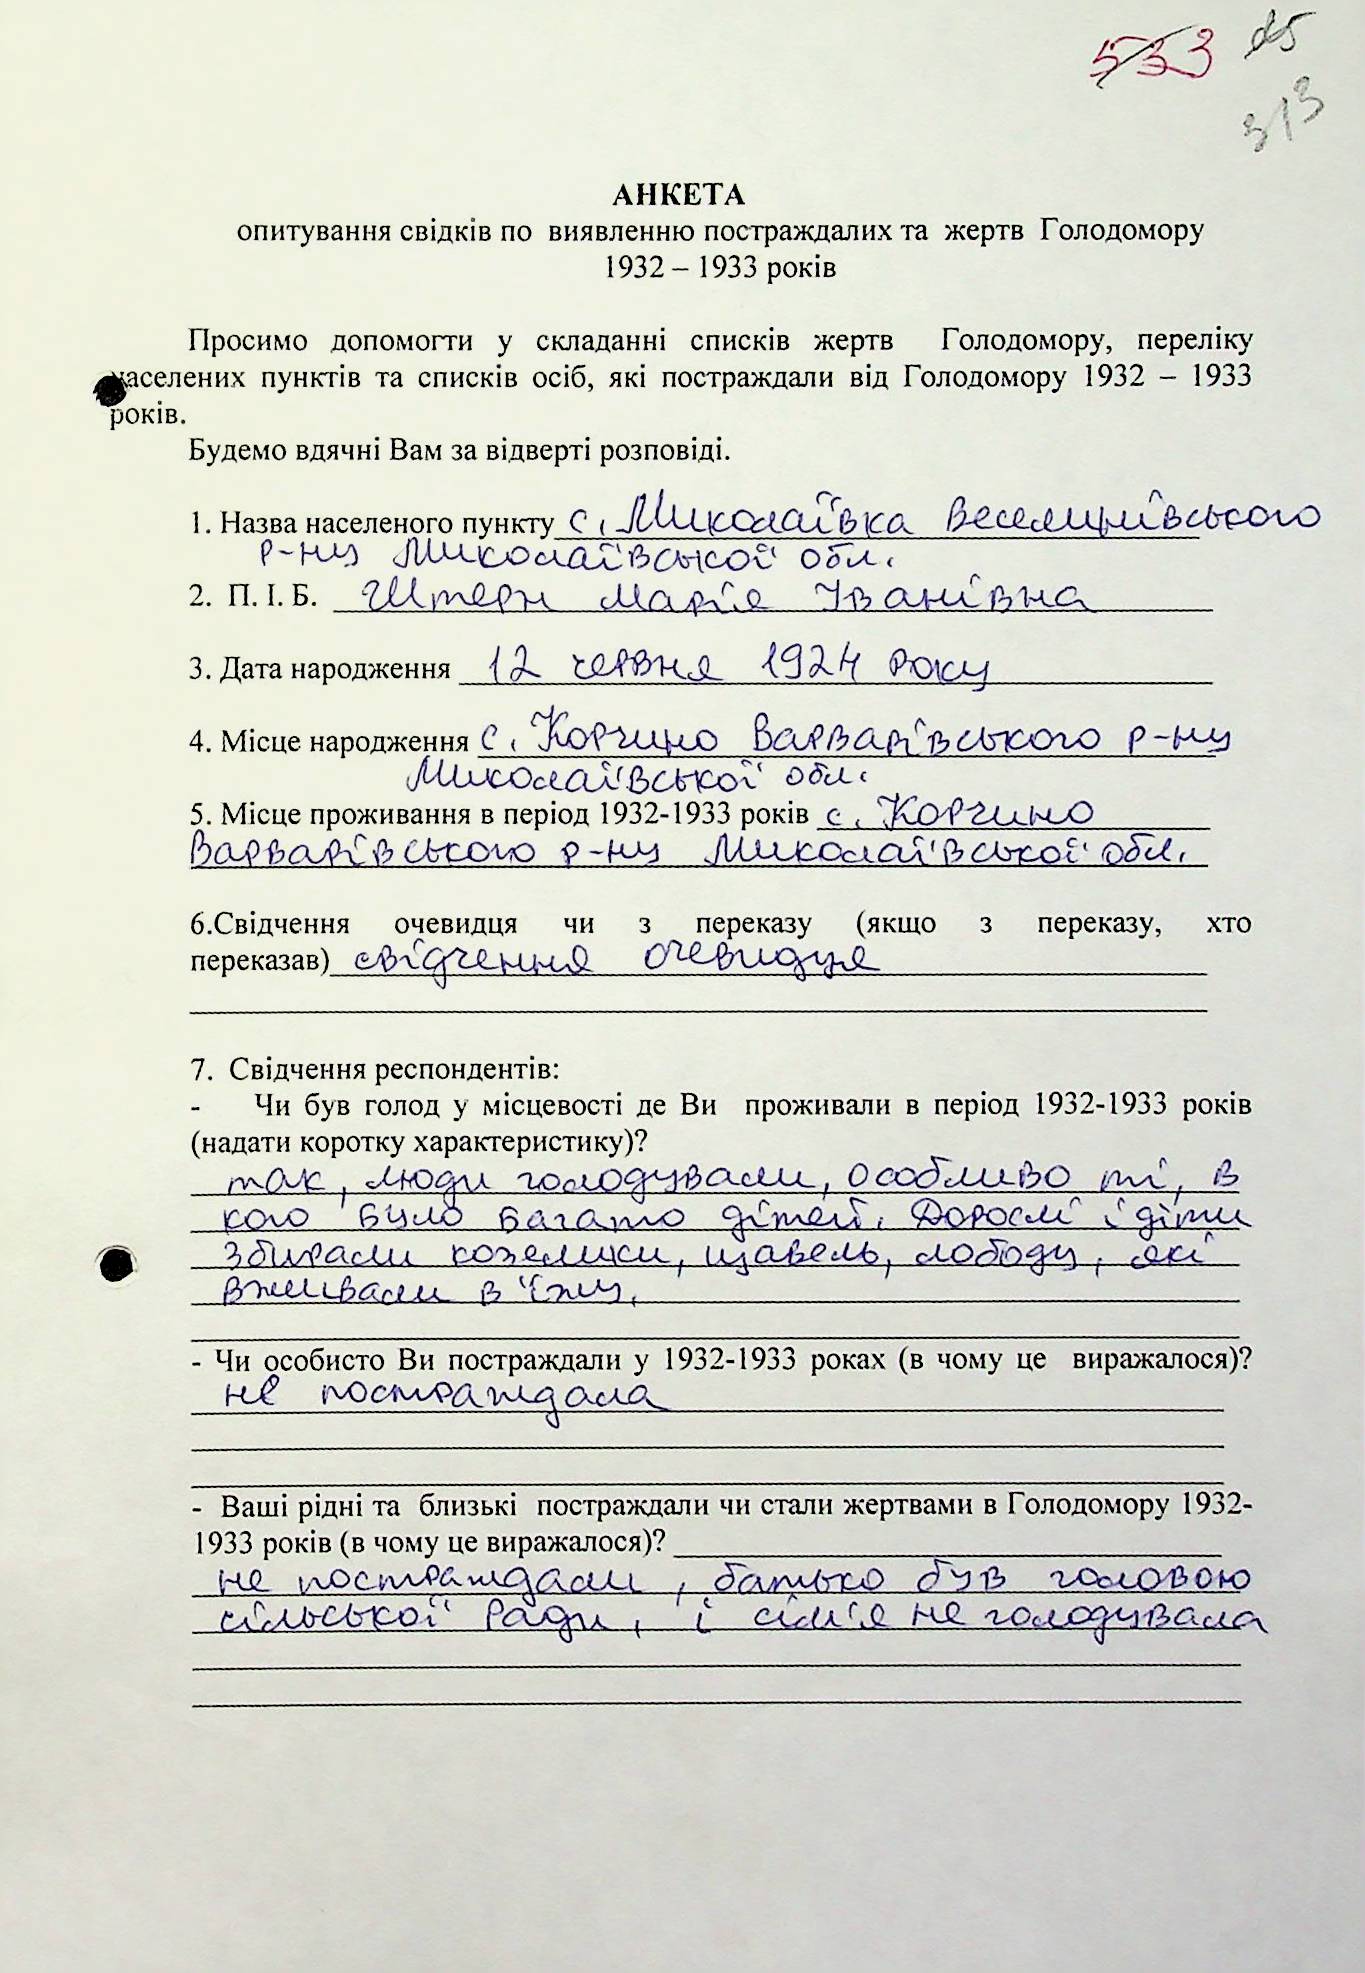 533 25
313
АНКЕТА
опитування свідків по виявленню постраждалих та жертв Голодомору
1932 – 1933 років
Просимо допомогти у складанні списків жертв Голодомору, переліку
населених пунктів та списків осіб, які постраждали від Голодомору 1932 – 1933
років.
Будемо вдячні Вам за відверті розповіді.
1. Назва населеного пункту с. Миколаївка Веселинівського
р-ну Миколаївської обл.
2. П. І. Б. Штерн Марія Іванівна
3. Дата народження 12 червня 1924 року
4. Місце народження с. Корчино Варварівського р-ну
Миколаївської обл.
5. Місце проживання в період 1932-1933 років с. Корчино
Варварівського р-ну Миколаївської обл.
6.Свідчення очевидця чи з переказу (якщо з переказу, хто
переказав) свідчення очевидця
7. Свідчення респондентів:
- Чи був голод у місцевості де Ви проживали в період 1932-1933 років
(надати коротку характеристику)?
так, люди голодували, особливо ті, в
кого було багато дітей. Дорослі і діти
збирали козелики, щавель, лободу, які
вживали в їжу.
- Чи особисто Ви постраждали у 1932-1933 роках (в чому це виражалося)?
не постраждала
- Ваші рідні та близькі постраждали чи стали жертвами в Голодомору 1932-
1933 років (в чому це виражалося)?
не постраждали, батько був головою
сільської Ради, і сім'я не голодувала